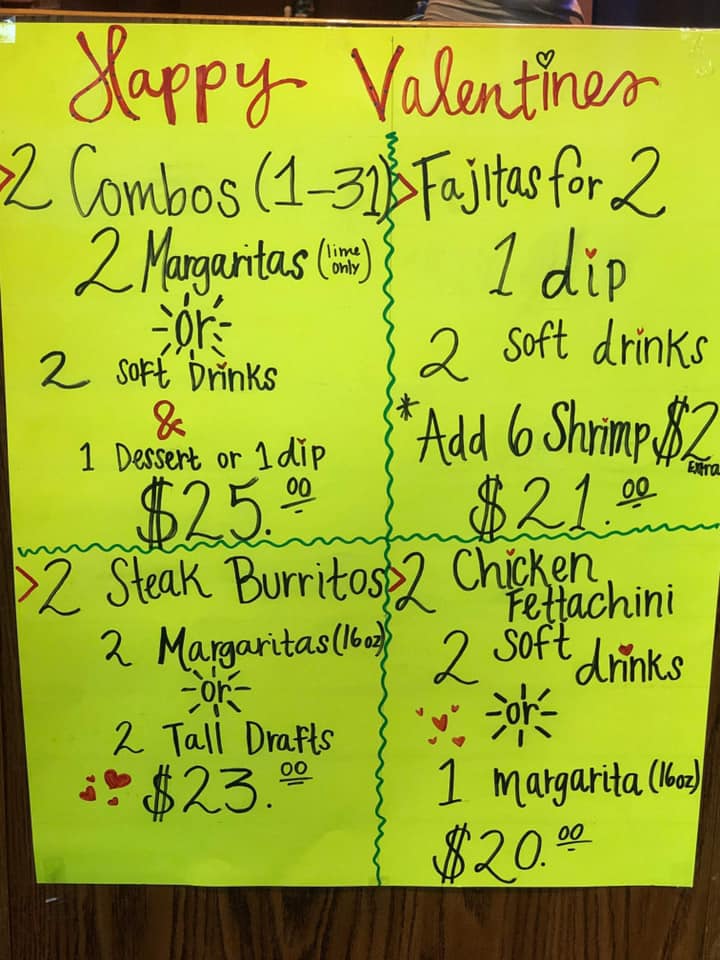 Happy Valentines
>2 Combos (1-31)
2 Margaritas (lime only)
-or-
2 Soft Drinks
&
1 Dessert or 1 dip
$25.00
>Fajitas for 2
1 dip
2 soft drinks
*Add 6 Shrimp $2 Extra
$21.00
>2 Steak Burritos
2 Margaritas (16oz)
-or-
2 Tall Drafts
$23.00
>2 Chicken
Fettachini
2 soft drinks
-or-
1 margarita (16oz)
$20.00